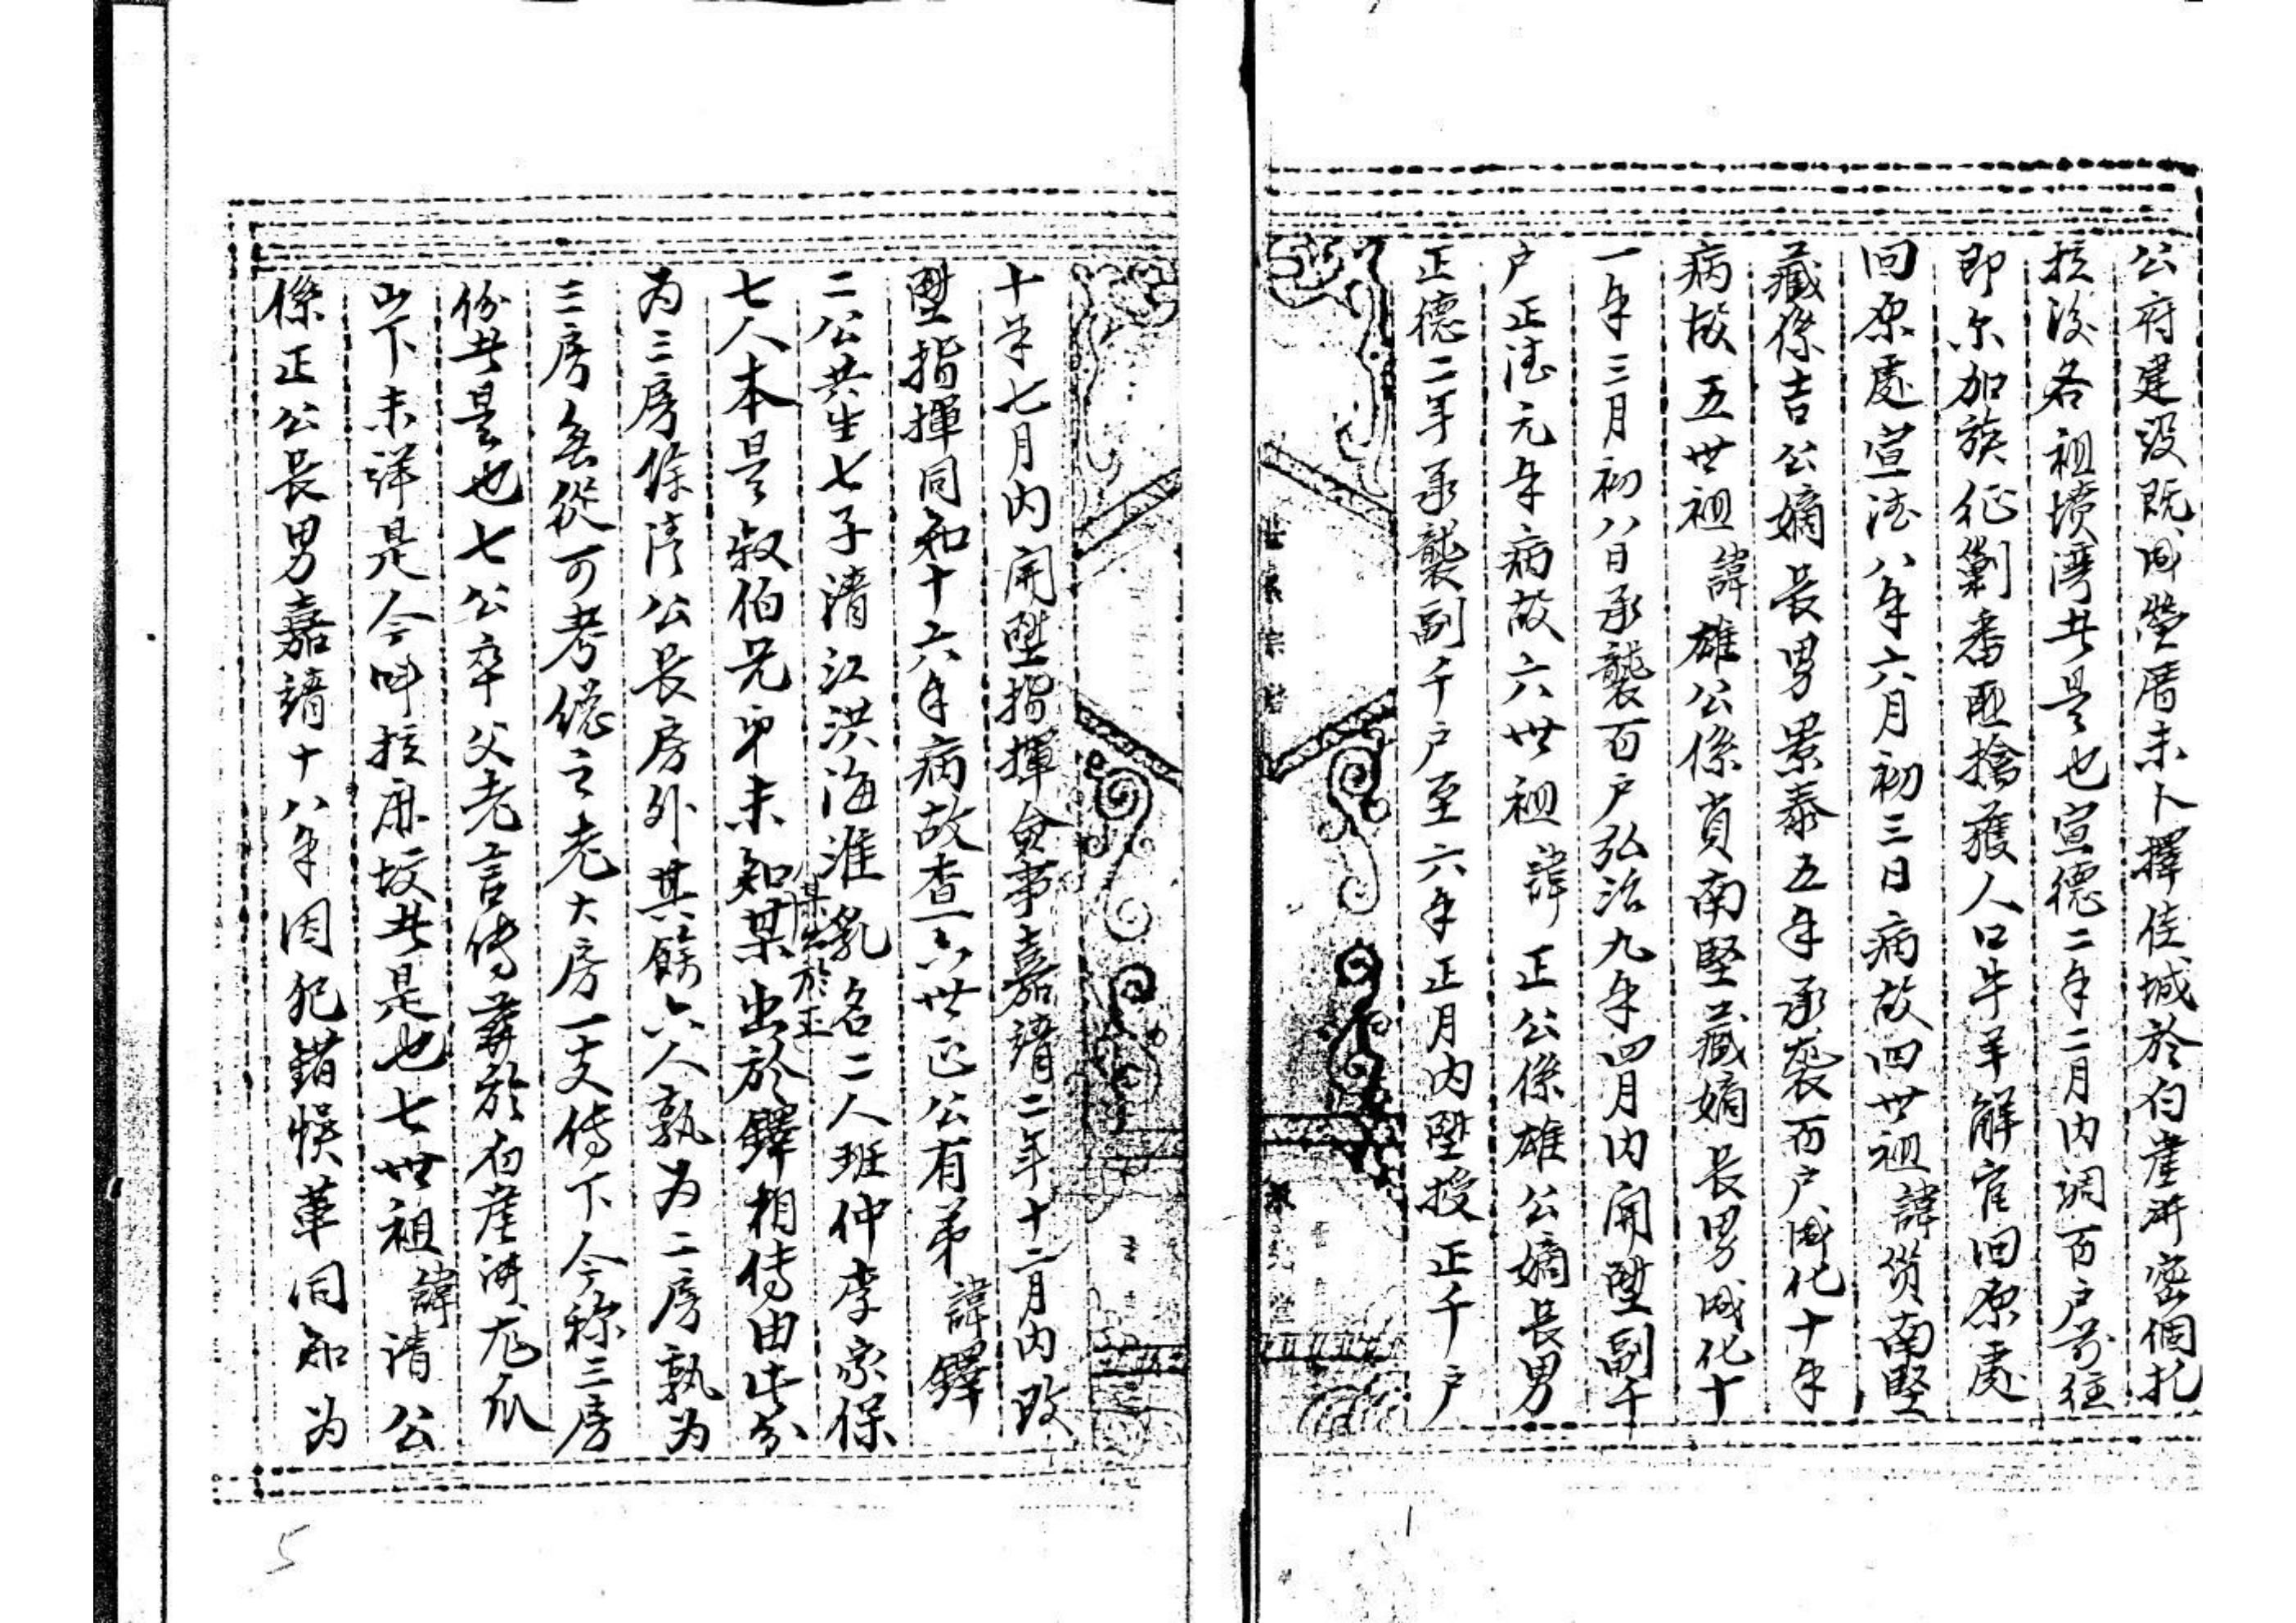 公府建設既成塋厝未卜擇佳城於白崖所密個扎
後各祖墳灣共是也宣德二年二月内調百户前往
即尓加族征剿番匪擒獲人口牛羊解官回原處
回原處宣德八年六月初三日病故四世祖諱負南堅
藏係吉公嫡長男景泰五年承襲百户成化十年
病故五世祖諱雄公係負南堅藏嫡長男成化十
一年三月初八日承襲百户弘治九年四月内開陞副千
户正德元年病故六世祖諱正公係雄公嫡長男
正德二年承襲副千户至六年正月内陞授正千户
十年七月内開陞指揮僉事嘉靖二年十二月内改
陞指揮同知十六年病故查一六世正公有弟諱鐸
二公共生七子清江洪海淮乳名二人班仲李家保
七人本是叔伯兄弟未知某出於正某出於鐸相傳由此分
为三房除清公長房外其餘六人孰为二房孰为
三房無從可考總之老大房一支傳下今称三房
份共是也七公卒父老言傳葬於白崖溝尨爪
山下未详是今叫拉麻坟共是也七世祖諱清公
係正公長男嘉靖十八年因犯錯悮革同知为
5